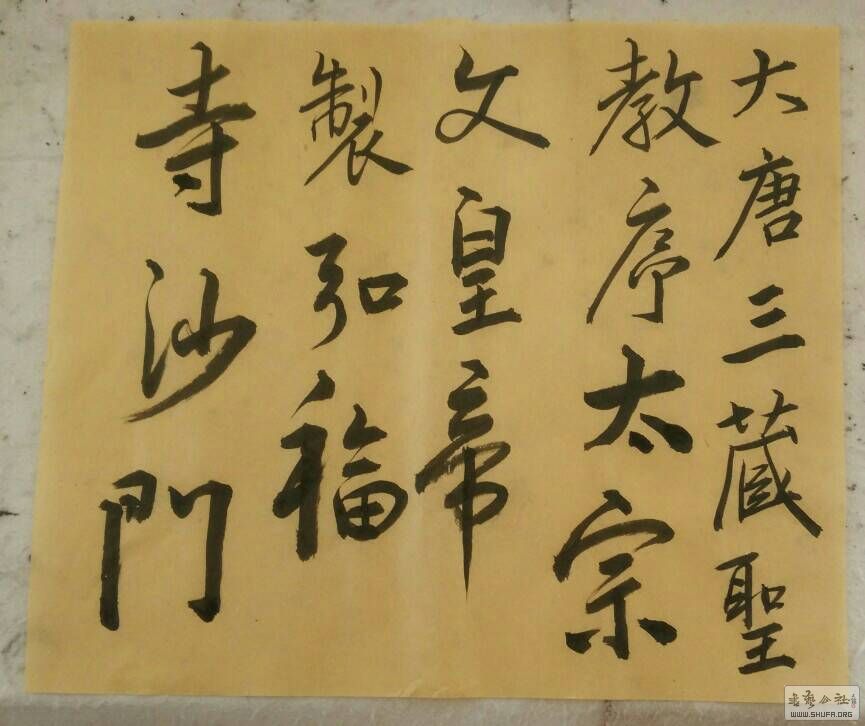 大唐三藏聖
教序太宗
文皇帝
製弘福
寺沙門
书艺公社
WWW.SHUFA.ORG